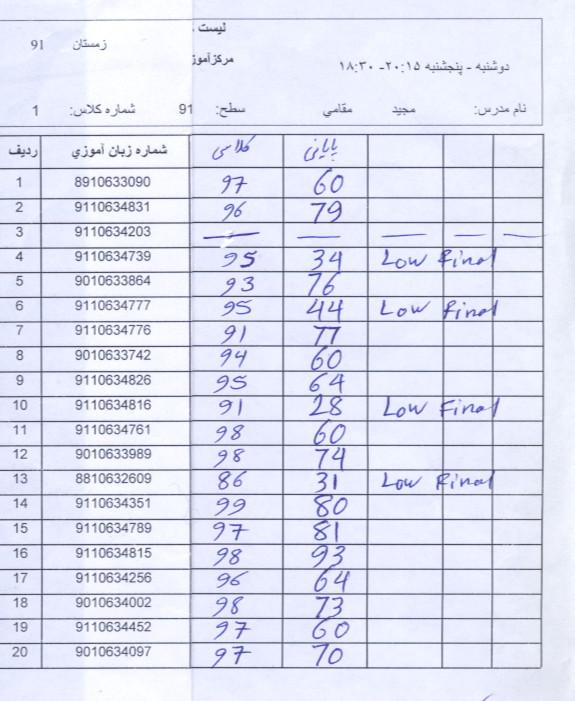 لیست
زمستان 91
مرکز آموز
دوشنبه - پنجشنبه ۲۰:۱۵- ۱۸:۳۰
نام مدرس: مجید مقامي سطح: 91 شماره کلاس: 1
ردیف شماره زبان آموزي کلاسی پایانی
1 8910633090 97 60
2 9110634831 96 79
3 9110634203 — — — — —
4 9110634739 95 34 Low Final
5 9010633864 93 76
6 9110634777 95 44 Low Final
7 9110634776 91 77
8 9010633742 94 60
9 9110634826 95 64
10 9110634816 91 28 Low Final
11 9110634761 98 60
12 9010633989 98 74
13 8810632609 86 31 Low Final
14 9110634351 99 80
15 9110634789 97 81
16 9110634815 98 93
17 9110634256 96 64
18 9010634002 98 73
19 9110634452 97 60
20 9010634097 97 70